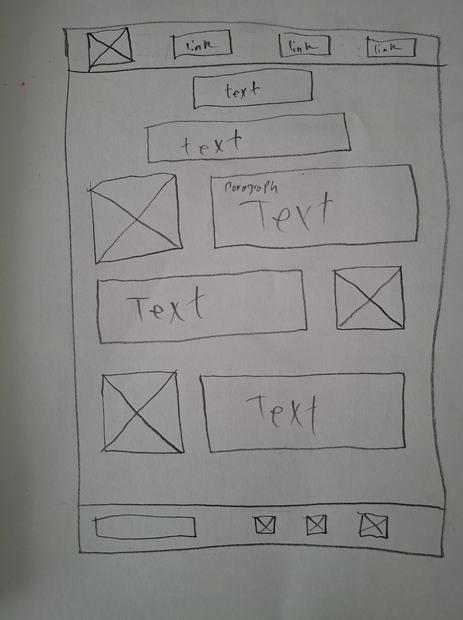 link
link
link
text
text
Paragraph
Text
Text
Text